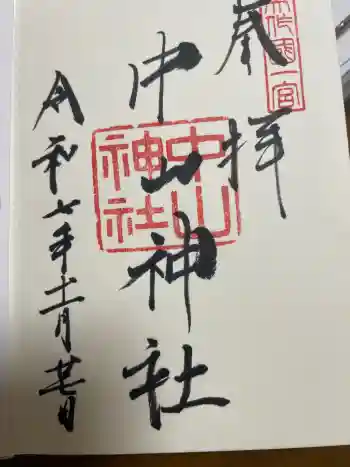 奉拝
作國一宮
中山神社
中山神社
令和七年十二月廿日